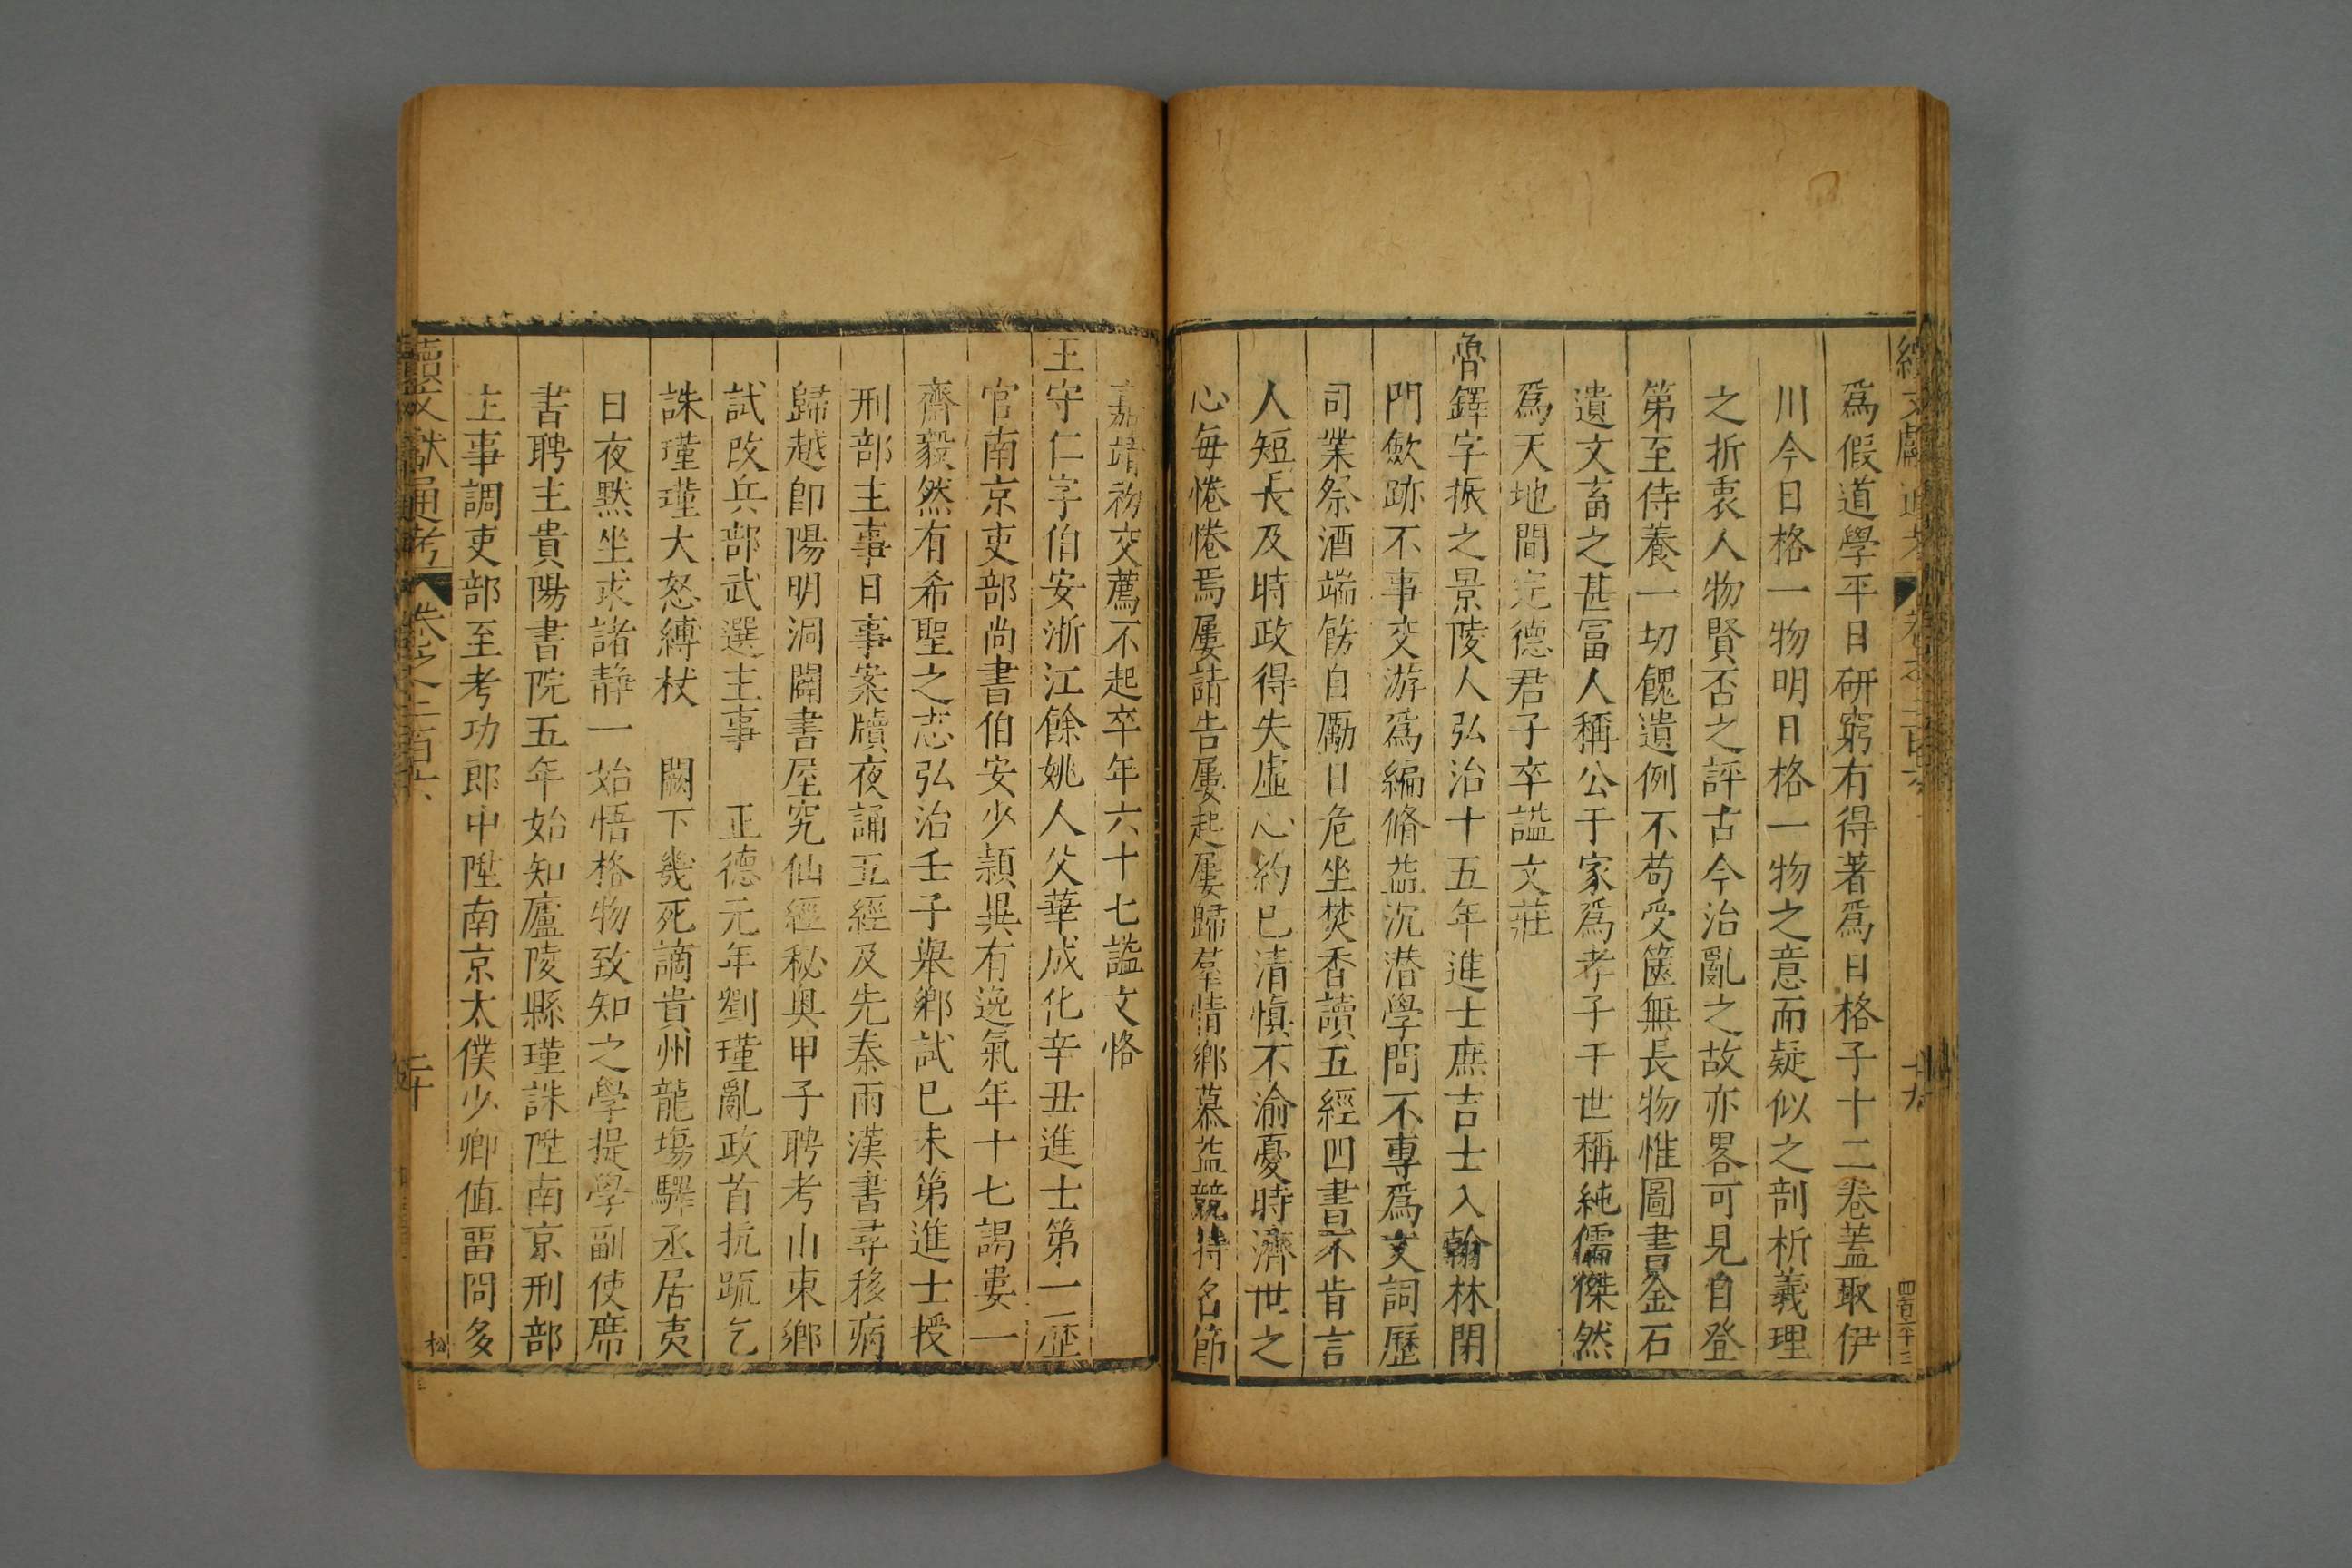 爲假道學平日研窮有得著爲日格子十二卷蓋取伊
川今日格一物明日格一物之意而疑似之剖析義理
之折衷人物賢否之評古今治亂之故亦畧可見自登
第至侍養一切餽遺例不苟受篋無長物惟圖書金石
遺文畜之甚冨人稱公于家爲孝子于世稱純儒傑然
爲天地間完德君子卒謚文莊
魯鐸字振之景陵人弘治十五年進士庶吉士入翰林閉
門歛跡不事交游爲編脩益沉潛學問不專爲文詞歷
司業祭酒端飭自勵日危坐焚香讀五經四書不肯言
人短長及時政得失虛心約已清慎不渝憂時濟世之
心每惓惓焉屢請告屢起屢歸羣情鄉慕益競持名節
嘉靖初交薦不起卒年六十七謚文恪
王守仁字伯安浙江餘姚人父華成化辛丑進士第一歷
官南京吏部尚書伯安少穎異有逸氣年十七謁婁一
齋毅然有希聖之志弘治壬子舉鄉試巳未第進士授
刑部主事日事案牘夜誦五經及先秦兩漢書尋移病
歸越卽陽明洞闢書屋究仙經秘奥甲子聘考山東鄉
試改兵部武選主事　正德元年劉瑾亂政首抗疏乞
誅瑾瑾大怒縛杖　闕下幾死謫貴州龍塲驛丞居夷
日夜默坐求諸靜一始悟格物致知之學提學副使席
書聘主貴陽書院五年始知廬陵縣瑾誅陞南京刑部
主事調吏部至考功郎中陞南京太僕少卿值畱問多
續文獻通考　卷之二百六　二十　松